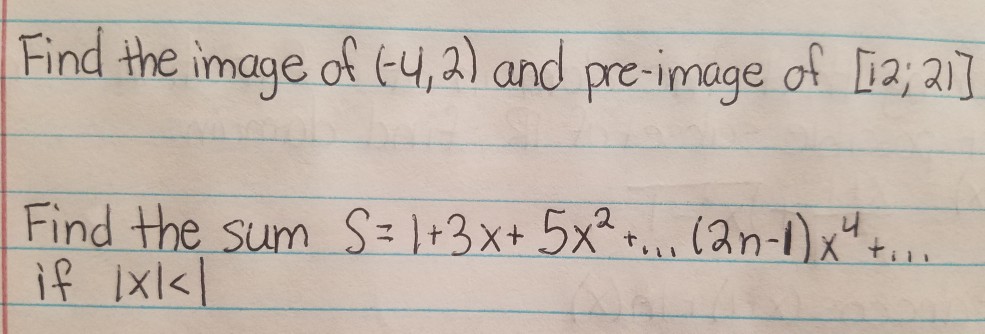 Find the image of (-4,2) and pre-image of [12; 21]
Find the sum S = 1+3x+ 5x² +... (2n-1)x⁴ +...
if |x|<1